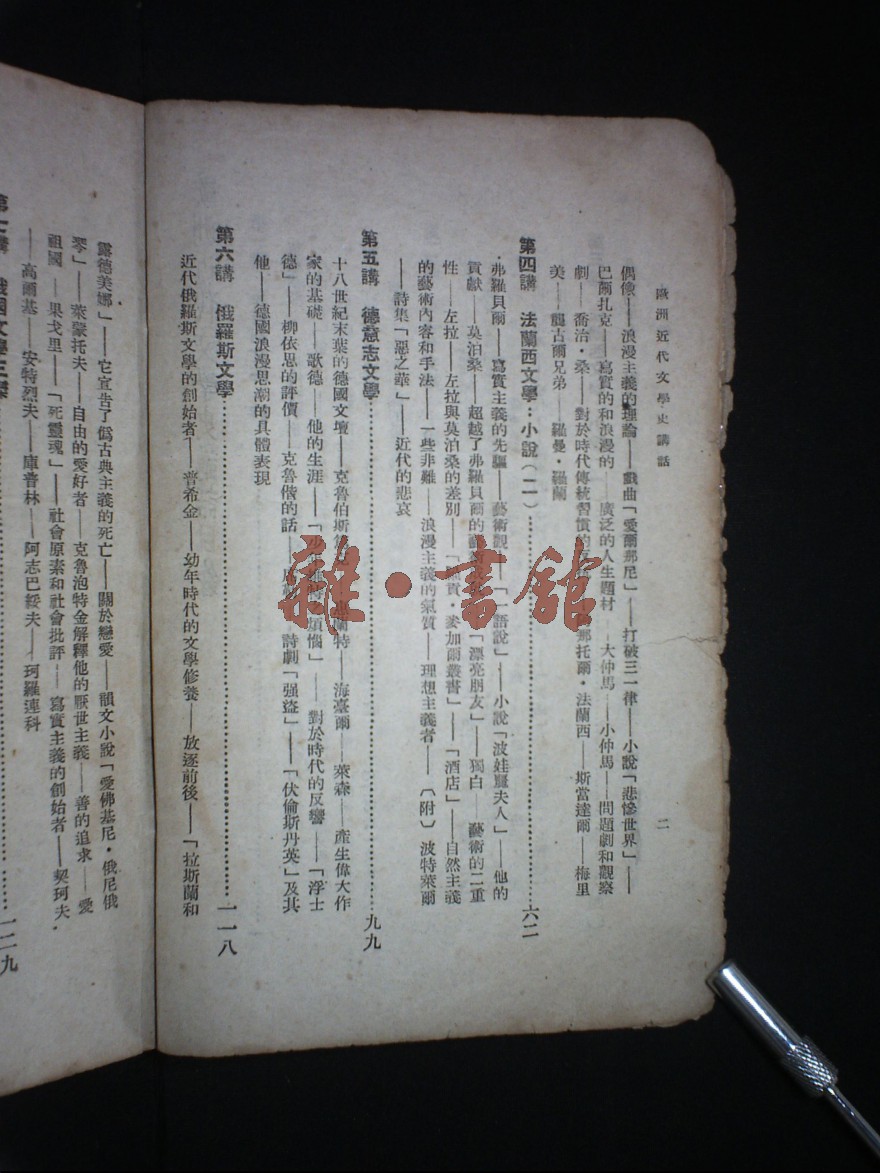 歐洲近代文學史講話
二
偶像——浪漫主義的理論——戲曲「愛爾那尼」——打破三一律——小說「悲慘世界」——
巴爾扎克——寫實的和浪漫的——廣泛的人生題材——大仲馬——小仲馬——問題劇和觀察
劇——喬治・桑——對於時代傳統習慣的 那托爾・法蘭西——斯當達爾——梅里
美——龔古爾兄弟——羅曼・羅蘭
第四講 法蘭西文學：小說（二）……六二
・弗羅貝爾——寫實主義的先驅——藝術觀——「 語說」——小說「波娃麗夫人」——他的
貢獻——莫泊桑——超越了弗羅貝爾的藝 「漂亮朋友」——獨白——藝術的二重
性——左拉——左拉與莫泊桑的差別——「 貢・麥加爾叢書」——「酒店」——自然主義
的藝術內容和手法——一些非難——浪漫主義的氣質——理想主義者——（附）波特萊爾
——詩集「惡之華」——近代的悲哀
第五講 德意志文學……九九
十八世紀末葉的德國文壇——克魯伯斯 蘭特——海臺爾——萊森——產生偉大作
家的基礎——歌德——他的生涯——「少年維特 煩惱」——對於時代的反響——「浮士
德」——柳依思的評價——克魯偕的話—— 詩劇「强盜」——「伏倫斯丹英」及其
他——德國浪漫思潮的具體表現
第六講 俄羅斯文學……一一八
近代俄羅斯文學的創始者——普希金——幼年時代的文學修養——放逐前後——「拉斯蘭和
露德美娜」——它宣告了僞古典主義的死亡——關於戀愛——韻文小說「愛佛基尼・俄尼俄
琴」——萊肇托夫——自由的愛好者——克魯泡特金解釋他的厭世主義——善的追求——愛
祖國——果戈里——「死靈魂」——社會原素和社會批評——寫實主義的創始者——契珂夫・
——高爾基——安特烈夫——庫普林——阿志巴綏夫——珂羅連科
第七講 俄國文學三傑……一二九
雜・書館